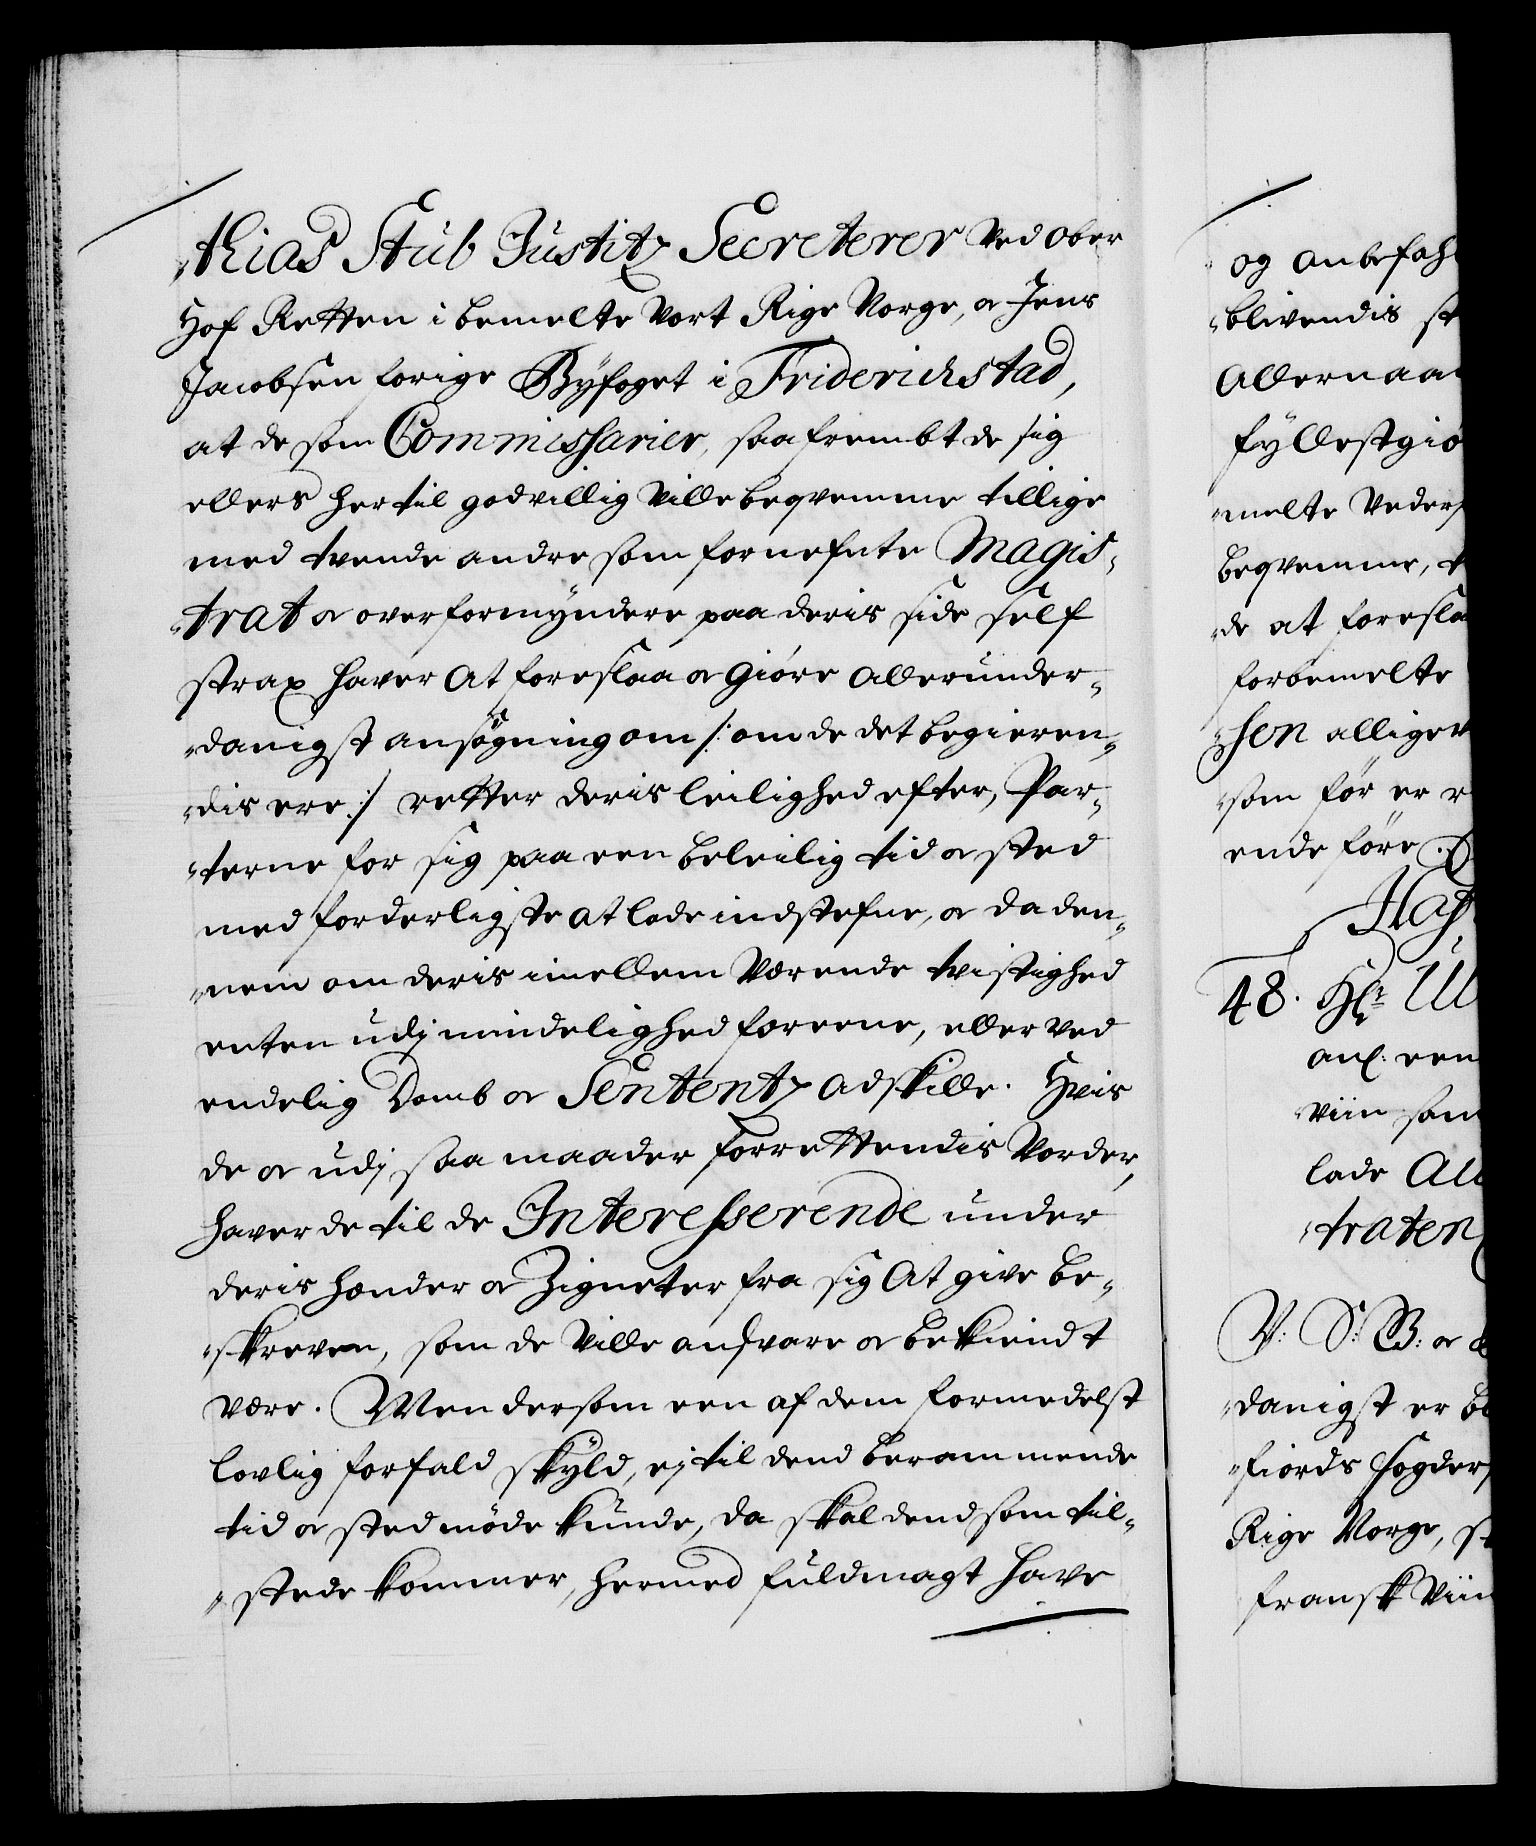 „thias Stub Justitz Secreterer ved ober
Hof Retten i bemelte Vort Rige Norge, oc Jens
Jacobsen forige Bÿfoget i Friderichstad,
at de som Commissarier, saafrembt de sig
ellers hertil godvillig Ville beqvemme tillige
med tvende andre som fornefnte Magis„
„trat oc overformÿndere paa deris side self
strax hafver At foreslaa oc Giöre Allerunder„
„danigst ansögning om /: om de det begieren„
„dis ere :/ retter deris leilighed efter, Par„
„terne for sig paa een beleilig tid oc sted
med forderligste at lade indstefne, oc da den„
„nem om deris imellem Værende tvistighed
enten udj mindelighed foreene, eller ved
endelig Domb oc Sententz adskille. Hvis
de oc udj saa maader forrettendis Vorder,
hafver de til de Interesserende under
deris hænder oc Zigneter fra sig At give be„
„skreven, som de Ville ansvare oc bekiendt
være. Men dersom een af dem formedelst
lovlig forfald skÿld, ej til dend berammende
tid oc sted möde kunde, da skal dend som til„
„stede kommer, hermed fuldmagt have
og anbefah
„blivendis st
Allernaa
fyllestgiö
„melte Veders
beqvemme, t
„de at foresla
forbemelte
„sen alligev
„som för er
ende före.
Haf
48. Hr Ul
anl: een
viin som
lade All
„traten
V: S: B: oc
„danigst er be
„fiords Fogder
Rige Norge, st
fransk Viin